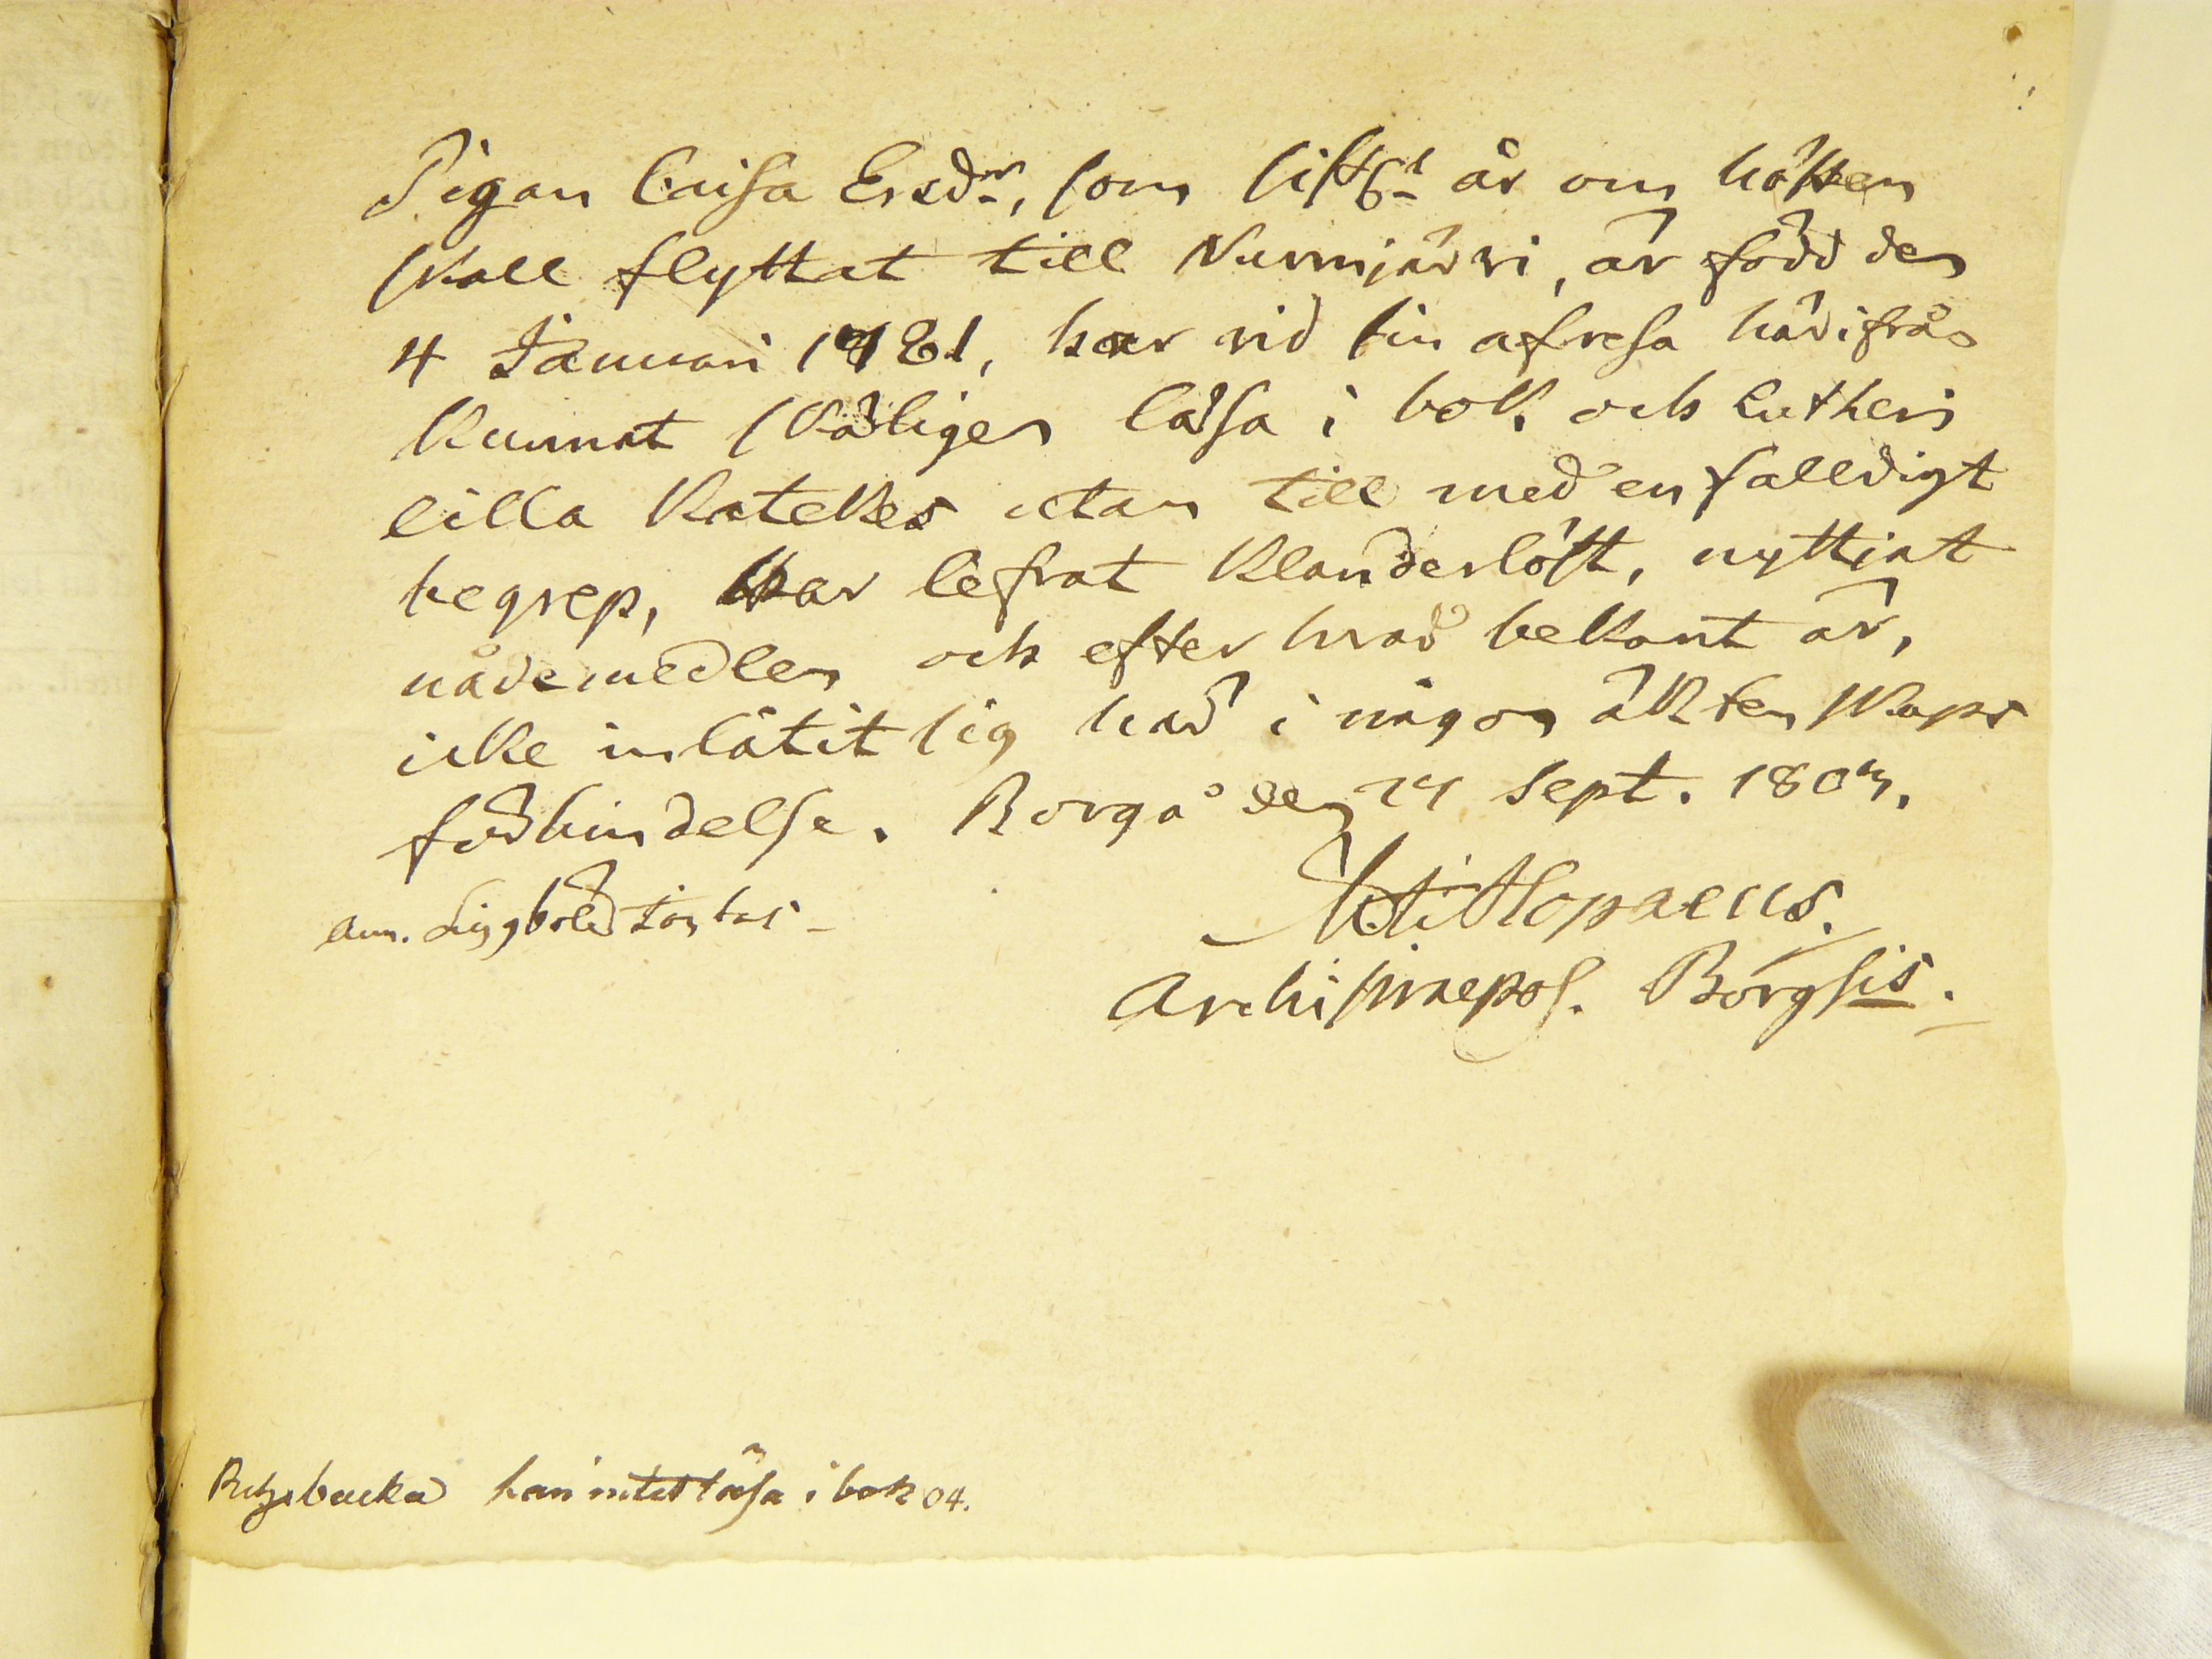 Pigan Caisa Ersdr, som sistl. år om hösten
skall flyttat till Nurmijärvi, är född den
4 Januari 1781, har vid sin afresa härifrån
kunnat skäligen läsa i bok och Lutheri
lilla Katekes utan till med enfalldigt
begrep, har lefvat klanderlöst, nyttjat
nådemedlen och efter hvad bekant är,
icke inlåtit sig här i någon äktenskaps
förbindelse. Borgå den 24 Sept. 1803.
Alopaeus.
Archipraepos. Borgsis.
läsa i bok 04.